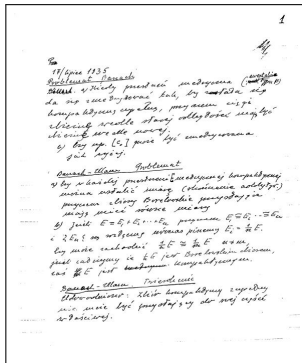 1
17/lipiec 1935
Problemat Banach
a) Kiedy przestrzeń metryczna
da się zmetryzować tak, by stała się
kompaktyczną zupełną, przyczem ciągi
zbieżne wedle starej odległości mają być
zbieżne wedle nowej.
b) Czy np. [c₀] może być zmetryzowana
jak wyżej.
Banach-Ulam. Problemat
a) Czy w każdej przestrzeni metrycznej kompaktycznej
można ustalić miarę
przyczem zbiory Borelowskie przystające
mają mieć równe miary
b) Jeśli E = E₁ + E₂ + ... Eₙ przyczem E₁ ≅ E₂ ≅ ... ≅ Eₙ
i {Eₙ} są rozłączne wówczas piszemy E₁ = 1/n E.
Czy może zachodzić 1/n E ≅ 1/m E n≠m,
jeśli założymy że E jest Borelowskim zbiorem,
zaś E jest kompaktycznym.
Banach-Ulam. Twierdzenie
Udowodnione: Zbiór kompaktyczny zupełny
nie może być przystający do swej części
właściwej.